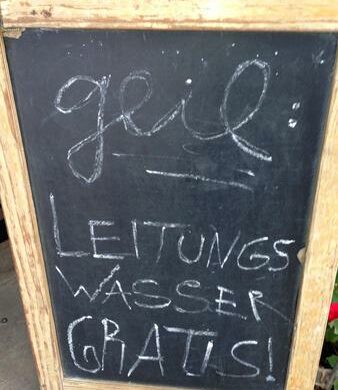 geil:
LEITUNGS
WASSER
GRATIS!